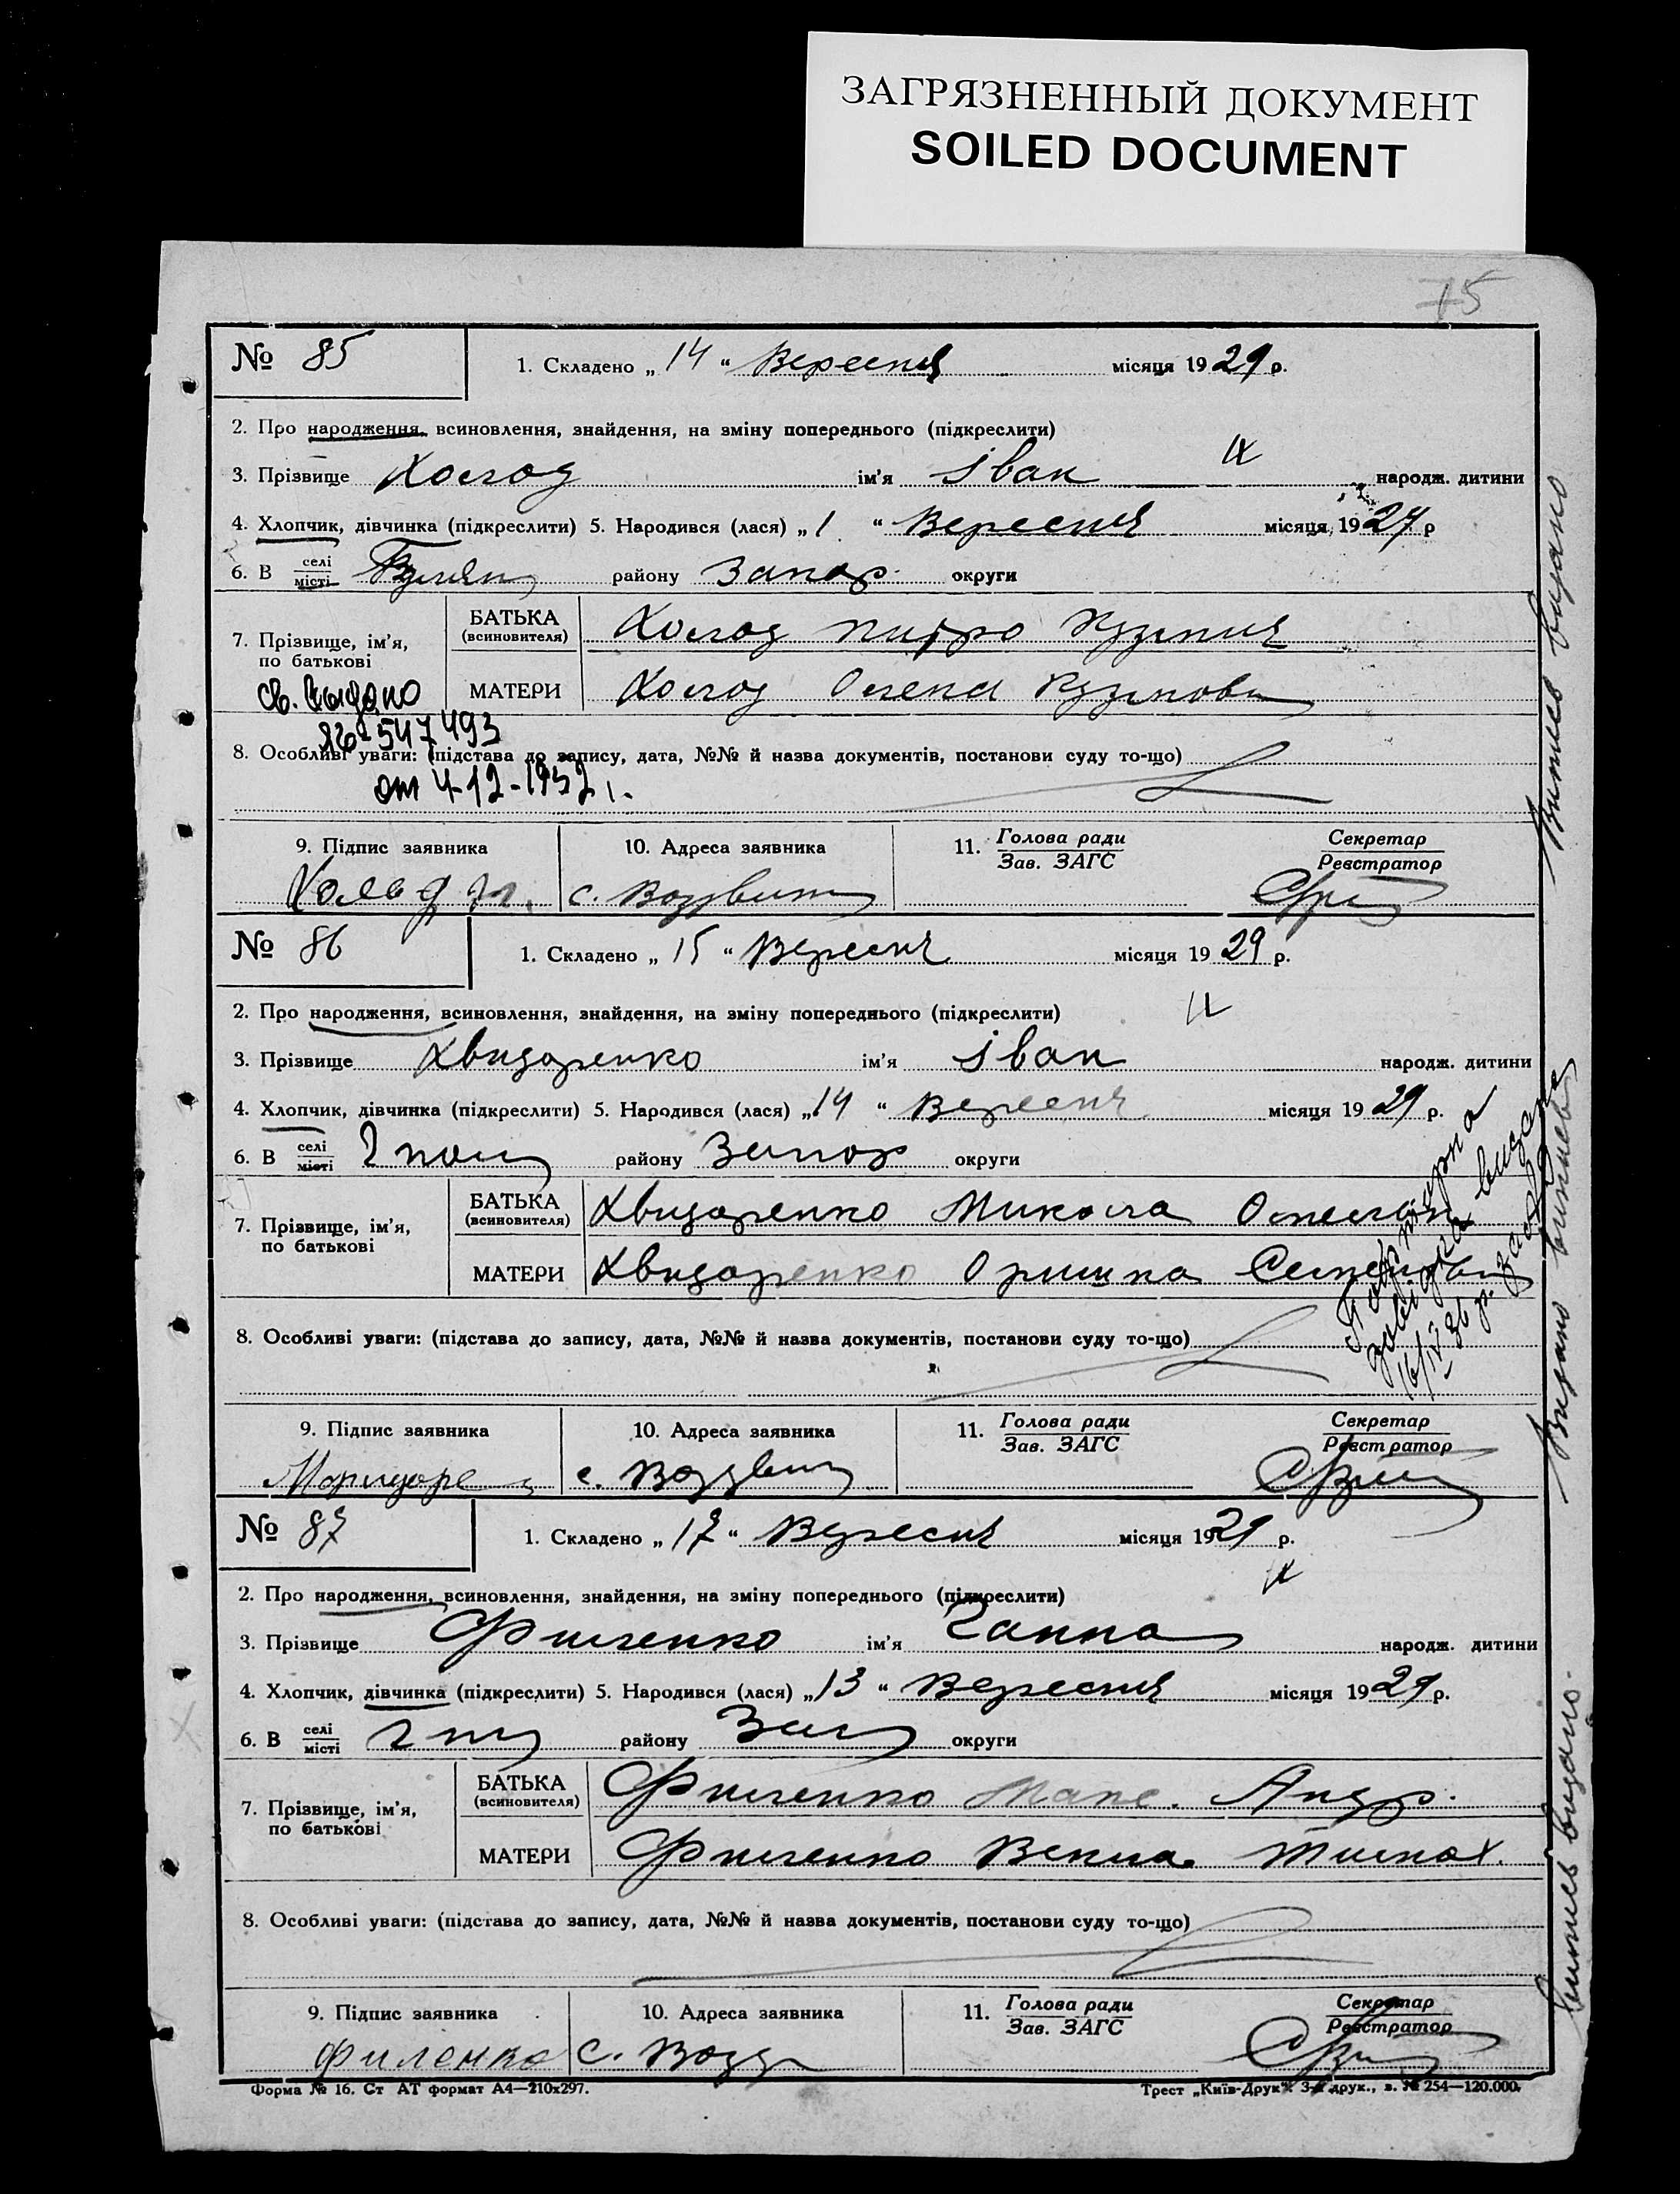 ЗАГРЯЗНЕННЫЙ ДОКУМЕНТ
SOILED DOCUMENT
75
№ 85
1. Складено „ 14 “ Вересня місяця 1929 р.
2. Про народження, всиновлення, знайдення, на зміну попереднього (підкреслити)
3. Прізвище Холод ім'я Іван народж. дитини
4. Хлопчик, дівчинка (підкреслити) 5. Народився (лася) „ 1 “ Вересня місяця 1929 р
6. В селі місті району Запор. округи
7. Прізвище, ім'я, по батькові
БАТЬКА (всиновителя) Холод
МАТЕРИ Холод Олена
св. выдано
547493
8. Особливі уваги: (підстава до запису, дата, №№ й назва документів, постанови суду то-що)
от 4-12-1952 г.
9. Підпис заявника
10. Адреса заявника с.
11. Голова ради Зав. ЗАГС
Секретар Реєстратор
Витяг видано
№ 86
1. Складено „ 15 “ Вересня місяця 1929 р.
2. Про народження, всиновлення, знайдення, на зміну попереднього (підкреслити)
3. Прізвище Хвидаренко ім'я Іван народж. дитини
4. Хлопчик, дівчинка (підкреслити) 5. Народився (лася) „ 14 “ Вересня місяця 1929 р.
6. В селі місті району Запор округи
7. Прізвище, ім'я, по батькові
БАТЬКА (всиновителя) Хвидаренко Микола
МАТЕРИ Хвидаренко Оришка
8. Особливі уваги: (підстава до запису, дата, №№ й назва документів, постанови суду то-що)
Повторна
видана
16/IV 36 р.
9. Підпис заявника
10. Адреса заявника с.
11. Голова ради Зав. ЗАГС
Секретар Реєстратор
Видано
№ 87
1. Складено „ 17 “ Вересня місяця 1929 р.
2. Про народження, всиновлення, знайдення, на зміну попереднього (підкреслити)
3. Прізвище Филенко ім'я Ганна народж. дитини
4. Хлопчик, дівчинка (підкреслити) 5. Народився (лася) „ 13 “ Вересня місяця 1929 р.
6. В селі місті району округи
7. Прізвище, ім'я, по батькові
БАТЬКА (всиновителя) Филенко Андр.
МАТЕРИ Филенко
8. Особливі уваги: (підстава до запису, дата, №№ й назва документів, постанови суду то-що)
9. Підпис заявника Филенко
10. Адреса заявника с.
11. Голова ради Зав. ЗАГС
Секретар Реєстратор
видано.
Форма № 16. Ст АТ формат А4—210х297.
Трест „Київ-Друк“. 3-я друк., з. № 254—120.000.